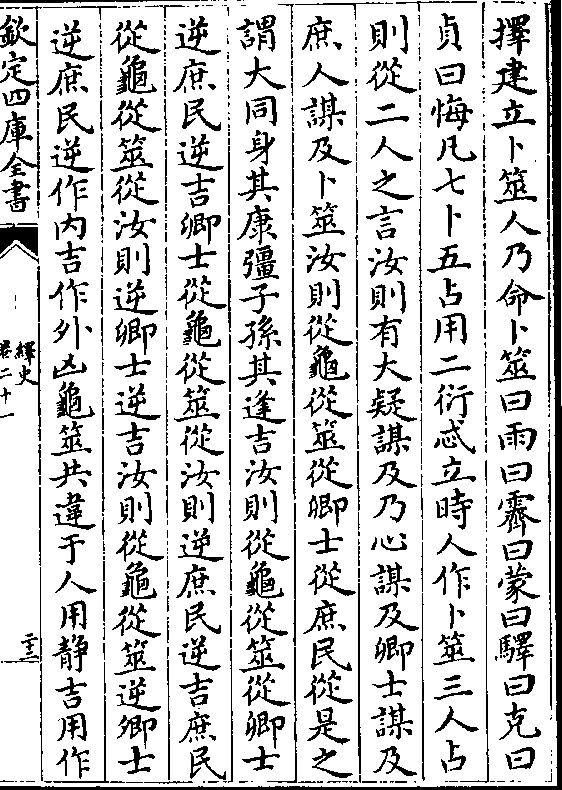 擇建立卜筮人乃命卜筮曰雨曰霽曰蒙曰驛曰克曰
貞曰悔凡七卜五占用二衍忒立時人作卜筮三人占
則從二人之言汝則有大疑謀及乃心謀及卿士謀及
庶人謀及卜筮汝則從龜從筮從卿士從庶民從是之
謂大同身其康彊子孫其逢吉汝則從龜從筮從卿士
逆庶民逆吉卿士從龜從筮從汝則逆庶民逆吉庶民
從龜從筮從汝則逆卿士逆吉汝則從龜從筮逆卿士
逆庶民逆作内吉作外凶龜筮共違于人用靜吉用作
欽定四庫全書
繹史
卷二十一